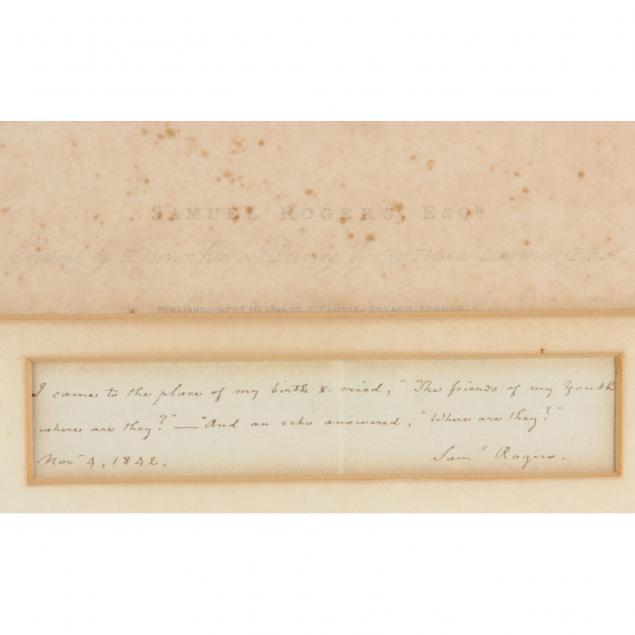 SAMUEL ROGERS, ESQR.
Engraved by H. Meyer, from a Drawing by Sir Thomas Lawrence, P.R.A.
PUBLISHED STRAND, LONDON.
I came to the place of my birth & cried, "The friends of my Youth
where are they?"—"And an echo answered, "Where are they?"
Novr 4, 1842.
Saml Rogers.